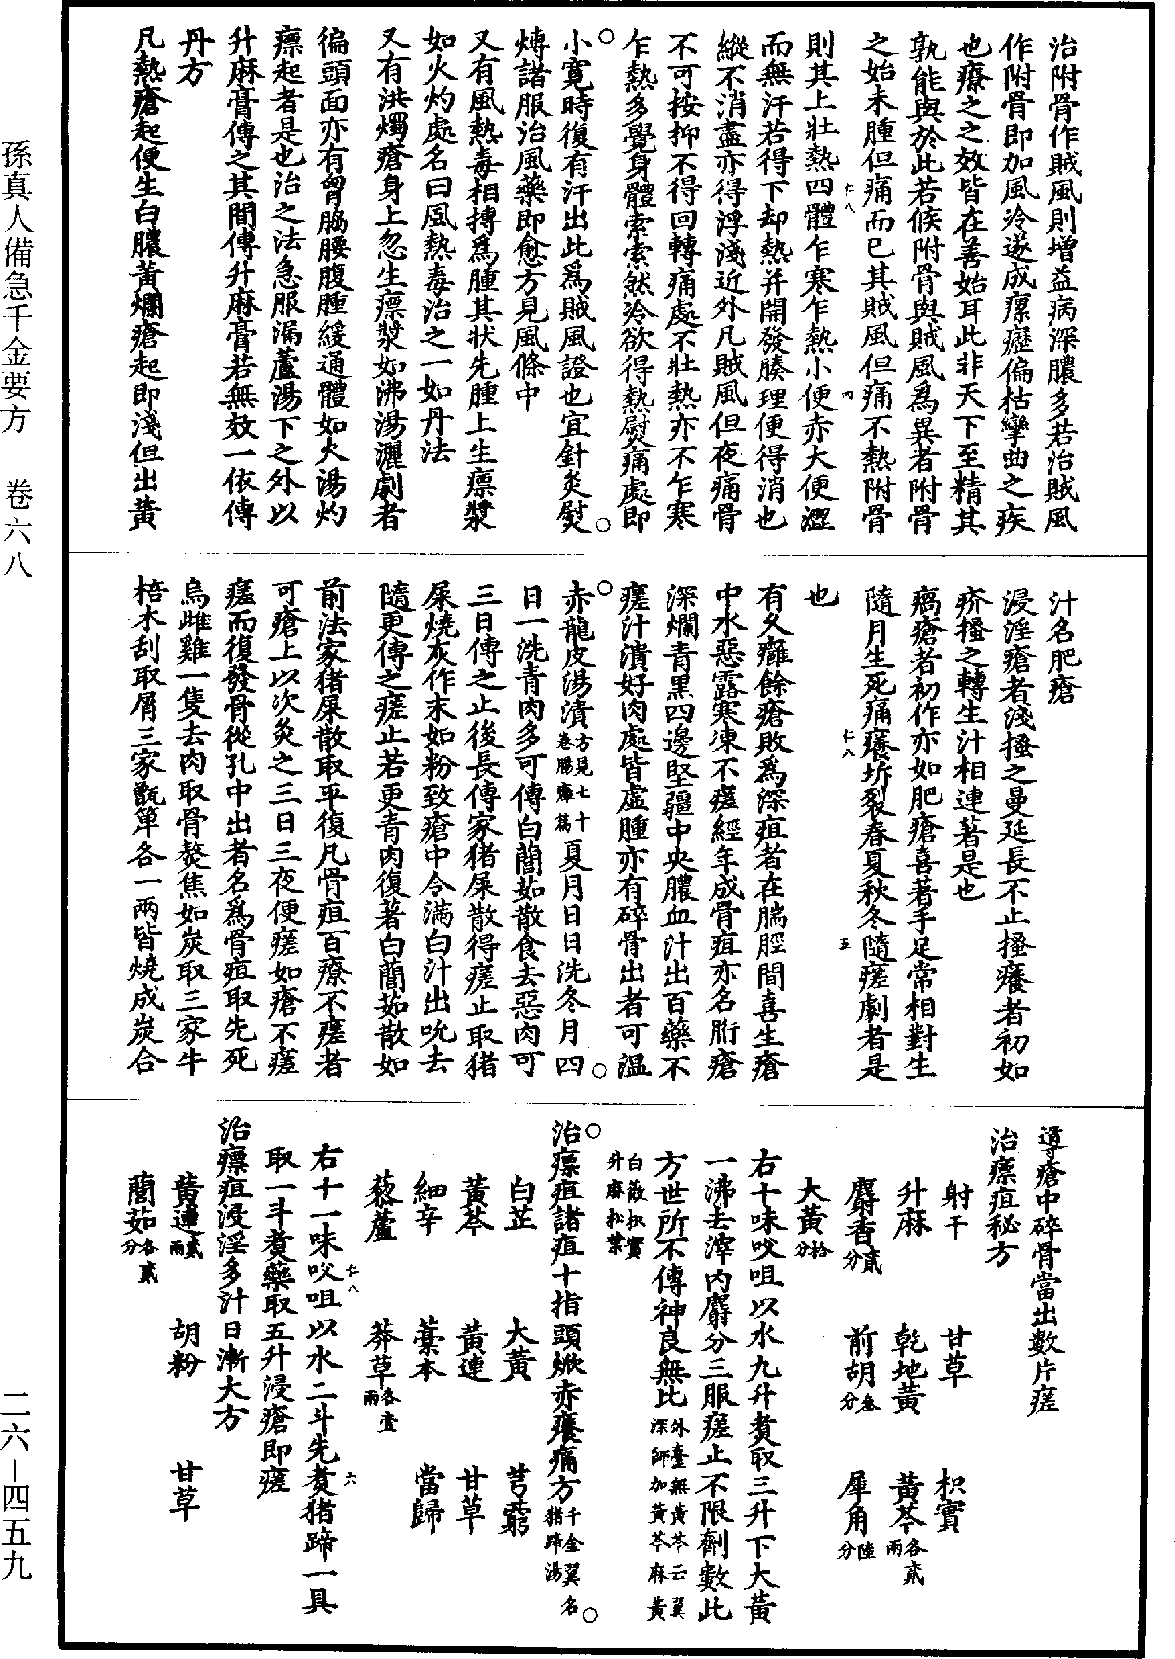 治附骨作賊風則增益病深膿多若治賊風
作附骨即加風冷遂成瘰癧偏枯攣曲之疾
也療之之效皆在善始耳此非天下至精其
孰能與於此若候附骨與賊風爲異者附骨
之始未腫但痛而已其賊風但痛不熱附骨
則其上壯熱四體乍寒乍熱小便赤大便澀
而無汗若得下却熱并開發腠理便得消也
縱不消盡亦得浮淺近外凡賊風但夜痛骨
不可按抑不得回轉痛處不壯熱亦不乍寒
乍熱多覺身體索索然冷欲得熱熨痛處即
小寛時復有汗出此爲賊風證也宜針灸熨
煿諸服治風藥即愈方見風條中
又有風熱毒相搏爲腫其狀先腫上生瘭漿
如火灼處名曰風熱毒治之一如丹法
又有洪燭瘡身上忽生瘭漿如沸湯灑劇者
徧頭面亦有胷脇腰腹腫緩通體如火湯灼
瘭起者是也治之法急服漏蘆湯下之外以
升麻膏傅之其間傅升麻膏若無效一依傅
丹方
凡熱瘡起便生白膿黃爛瘡起即淺但出黃
汁名肥瘡
浸淫瘡者淺搔之曼延長不止搔癢者初如
疥搔之轉生汁相連著是也
瘑瘡者初作亦如肥瘡喜著手足常相對生
隨月生死痛癢坼裂春夏秋冬隨瘥劇者是
也
有久癰餘瘡敗爲深疽者在腨脛間喜生瘡
中水惡露寒凍不瘥經年成骨疽亦名胻瘡
深爛青黑四邊堅彊中央膿血汁出百藥不
瘥汁潰好肉處皆虛腫亦有碎骨出者可溫
赤龍皮湯漬方見七十卷腸癰篇夏月日日洗冬月四
日一洗青肉多可傅白䕡茹散食去惡肉可
三日傅之止後長傅家猪屎散得瘥止取猪
屎燒灰作末如粉致瘡中令滿白汁出吮去
隨更傅之瘥止若更青肉復著白䕡茹散如
前法家猪屎散取平復凡骨疽百療不瘥者
可瘡上以次灸之三日三夜便瘥如瘡不瘥
瘥而復發骨從孔中出者名爲骨疽取先死
烏雌雞一隻去肉取骨熬焦如炭取三家牛
棓木刮取屑三家甑箄各一兩皆燒成炭合
導瘡中碎骨當出數片瘥
治瘭疽秘方
射干 甘草 枳實
升麻 乾地黃 黃芩各貳兩
麝香貳分 前胡叁分 犀角陸分
大黃拾分
右十味㕮咀以水九升煑取三升下大黃
一沸去滓內麝分三服瘥止不限劑數此
方世所不傳神良無比外臺無黃芩云翼深師加黃芩麻黃
白薇枳實升麻松葉
治瘭疽諸疽十指頭焮赤癢痛方千金翼名猪蹄湯
白芷 大黃 芎藭
黃芩 黃連 甘草
細辛 藁本 當歸
藜蘆 莽草各壹兩
右十一味㕮咀以水二斗先煑猪蹄一具
取一斗煑藥取五升浸瘡即瘥
治瘭疽浸淫多汁日漸大方
黃連貳兩 胡粉 甘草
䕡茹各貳分
孫真人備急千金要方 卷六八
二六－四五九